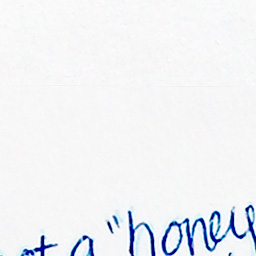 a "honey